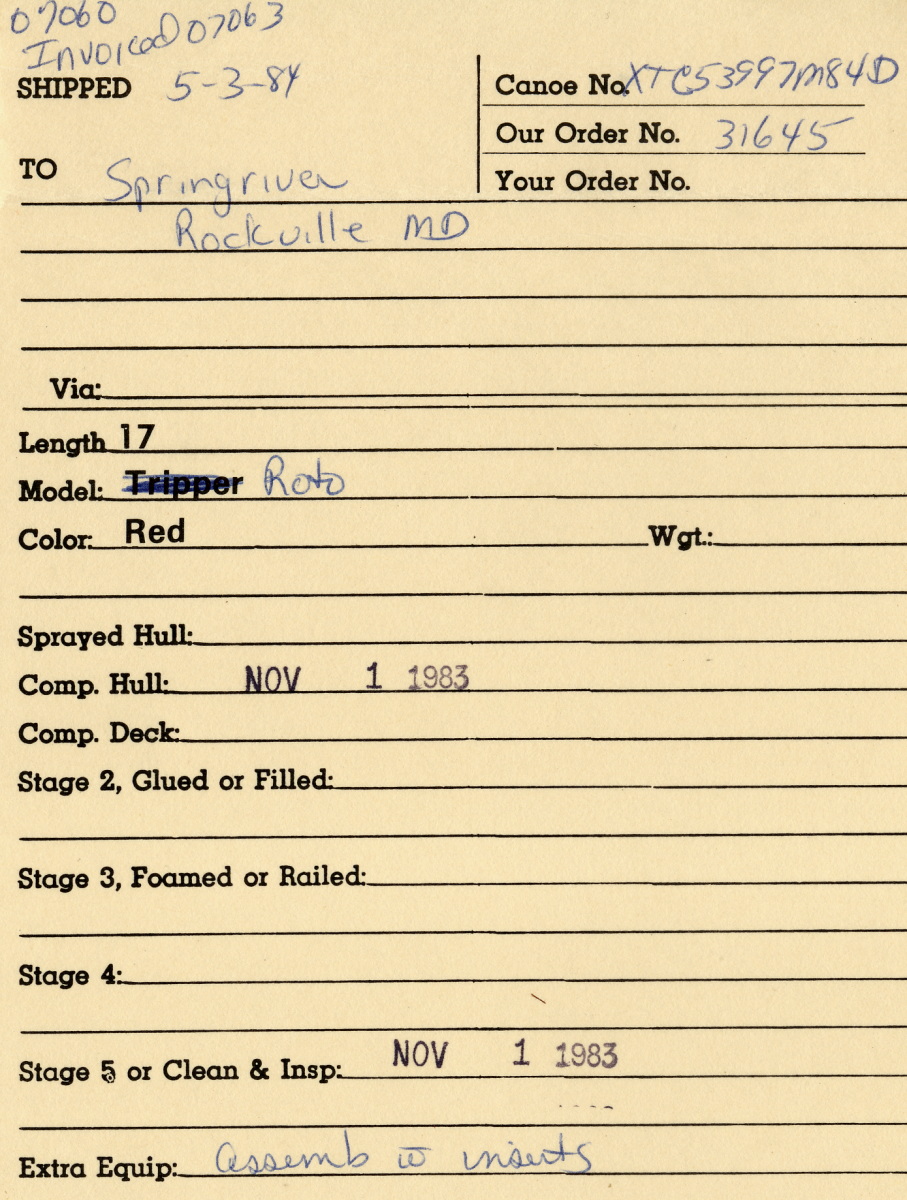 07060
Invoiced 07063
SHIPPED 5-3-84
Canoe No. XTC53997M84D
Our Order No. 31645
TO Springriver
Your Order No.
Rockville MD
Via:
Length 17
Model: Tripper Roto
Color: Red Wgt.:
Sprayed Hull:
Comp. Hull: NOV 1 1983
Comp. Deck:
Stage 2, Glued or Filled:
Stage 3, Foamed or Railed:
Stage 4:
Stage 5 or Clean & Insp: NOV 1 1983
Extra Equip: assemb w inserts